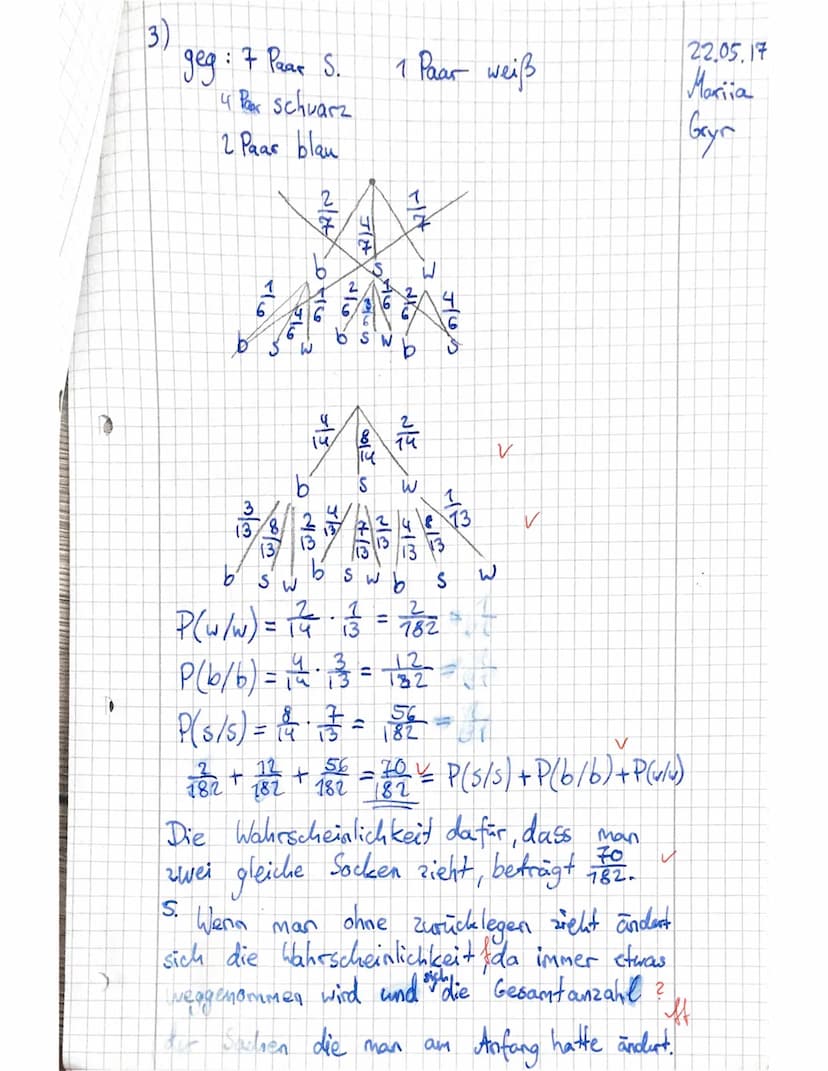 3)
geg: 7 Paar S. 1 Paar weiß
4 Paar schwarz
2 Paar blau
22.05.17
Mariia
Gryr
2/7 4/7 1/7
b s w
1/6 4/6 1/6 2/6 3/6 1/6 2/6 4/6
b s w b s w b s
4/14 8/14 2/14
b s w
3/13 8/13 2/13 4/13 7/13 2/13 4/13 8/13 1/13
b s w b s w b s w
P(w/w) = 2/14 · 1/13 = 2/182
P(b/b) = 4/14 · 3/13 = 12/182
P(s/s) = 8/14 · 7/13 = 56/182
2/182 + 12/182 + 56/182 = 70/182 = P(s/s) + P(b/b) + P(w/w)
Die Wahrscheinlichkeit dafür, dass man
zwei gleiche Socken zieht, beträgt 70/182.
5. Wenn man ohne zurücklegen zieht ändert
sich die Wahrscheinlichkeit, da immer etwas
weggenommen wird und sich die Gesamtanzahl ?
der Sachen die man am Anfang hatte ändert.